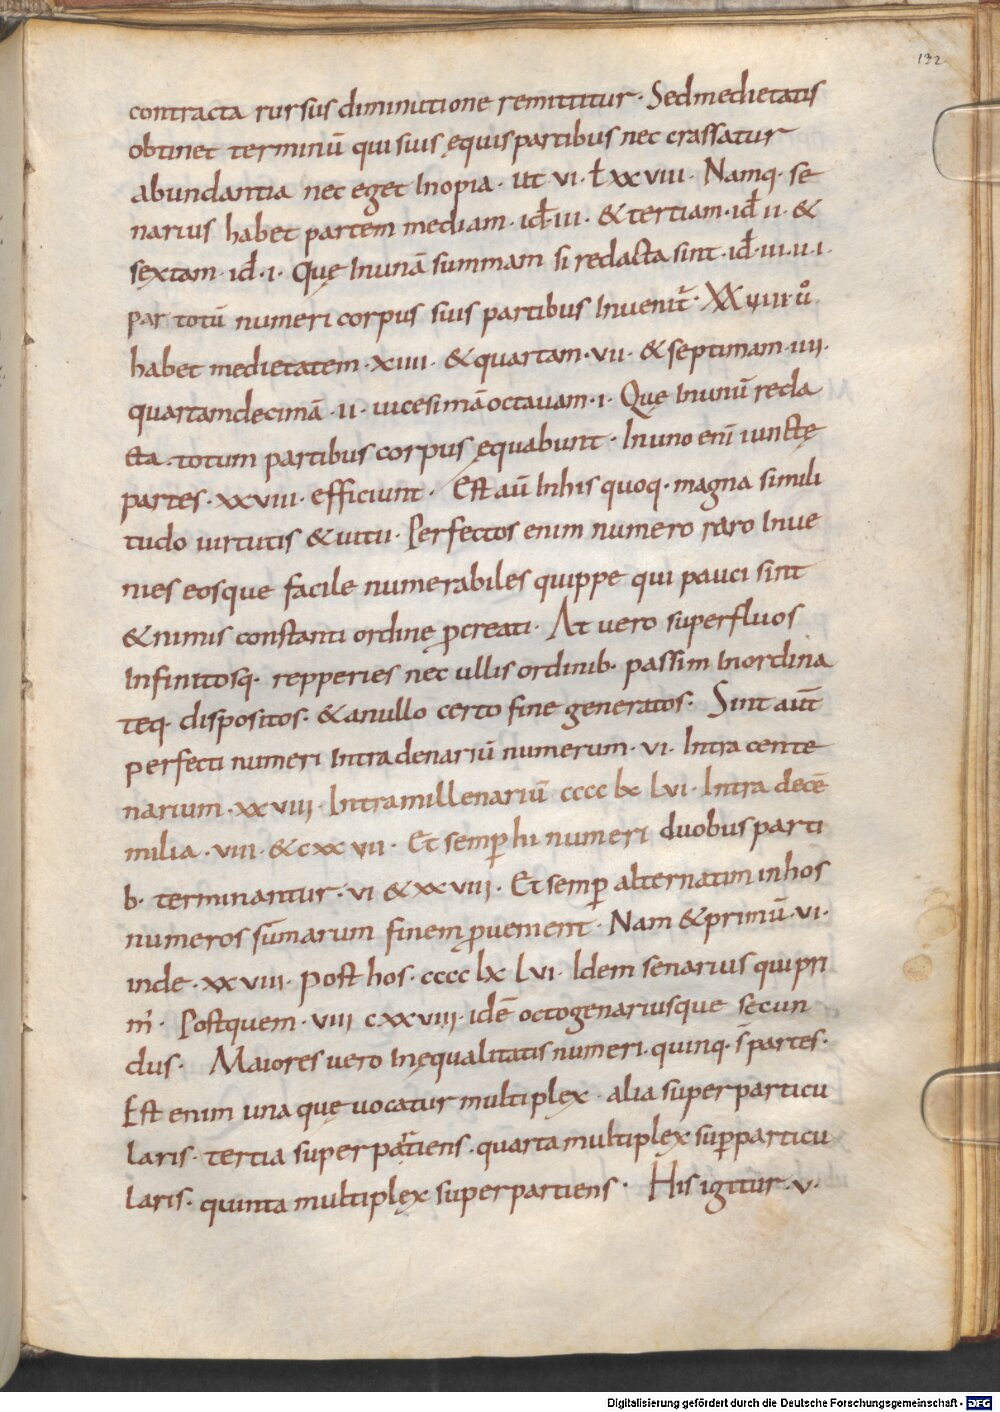 132
contracta rursus diminutione remittitur · Sed medietatis
obtinet terminū qui suis ęquis partibus nec crassatur
abundantia nec eget Inopia · ut vi · ł xxviii · Namq · se
narius habet partem mediam · id̄ · iii · & tertiam · id̄ ii · &
sextam · id̄ · i · Quę Inunā summam si redacta sint · id̄ · iii · ii · i ·
par totū numeri corpus suis partibus Inuenit᷑ · XXviii ů
habet medietatem · xiiii · & quartam · vii · & septimam · iiii ·
quartamdecimā · ii · uicesimā octauam · i · Quę Inunū reda
cta · totum partibus corpus ęquabunt · In uno eni᷑ iunctę
partes · xxviii · efficiunt · Est aū Inhis quoq · magna simili
tudo uirtutis & uitii · Perfectos enim numero raro Inue
nies eosque facile numerabiles quippe qui pauci sint
& nimis constanti ordine ꝓcreati · At uero superfluos
Infinitosq · repperies nec ullis ordinib · passim Inordina
teq · dispositos · & anullo certo fine generatos · Sint aūt
perfecti numeri Intra denariū numerum · vi · Intra cente
narium · xxviii · Intra millenariū cccc lx lvi · Intra decē
milia · viii · & cxx vii · Et semꝑ hi numeri duobus parti
b · terminantur · vi & xxviii · Et semꝑ alternatim in hos
numeros sūmarum finem ꝓuenient · Nam & primū · vi ·
inde · xxviii · post hos · cccc lx lvi · Idem senarius qui pri
m᷑ · Postquem · viii cxxviii · idē octogenariusque secun
dus · Maiores uero Inęqualitatis numeri · quinq · s̄ partes ·
Est enim una quę uocatur multiplex · alia superparticu
laris · tertia superpartiens · quarta multiplex suꝑparticu
laris · quinta multiplex superpartiens · His igitur · v ·
Digitalisierung gefördert durch die Deutsche Forschungsgemeinschaft - DFG